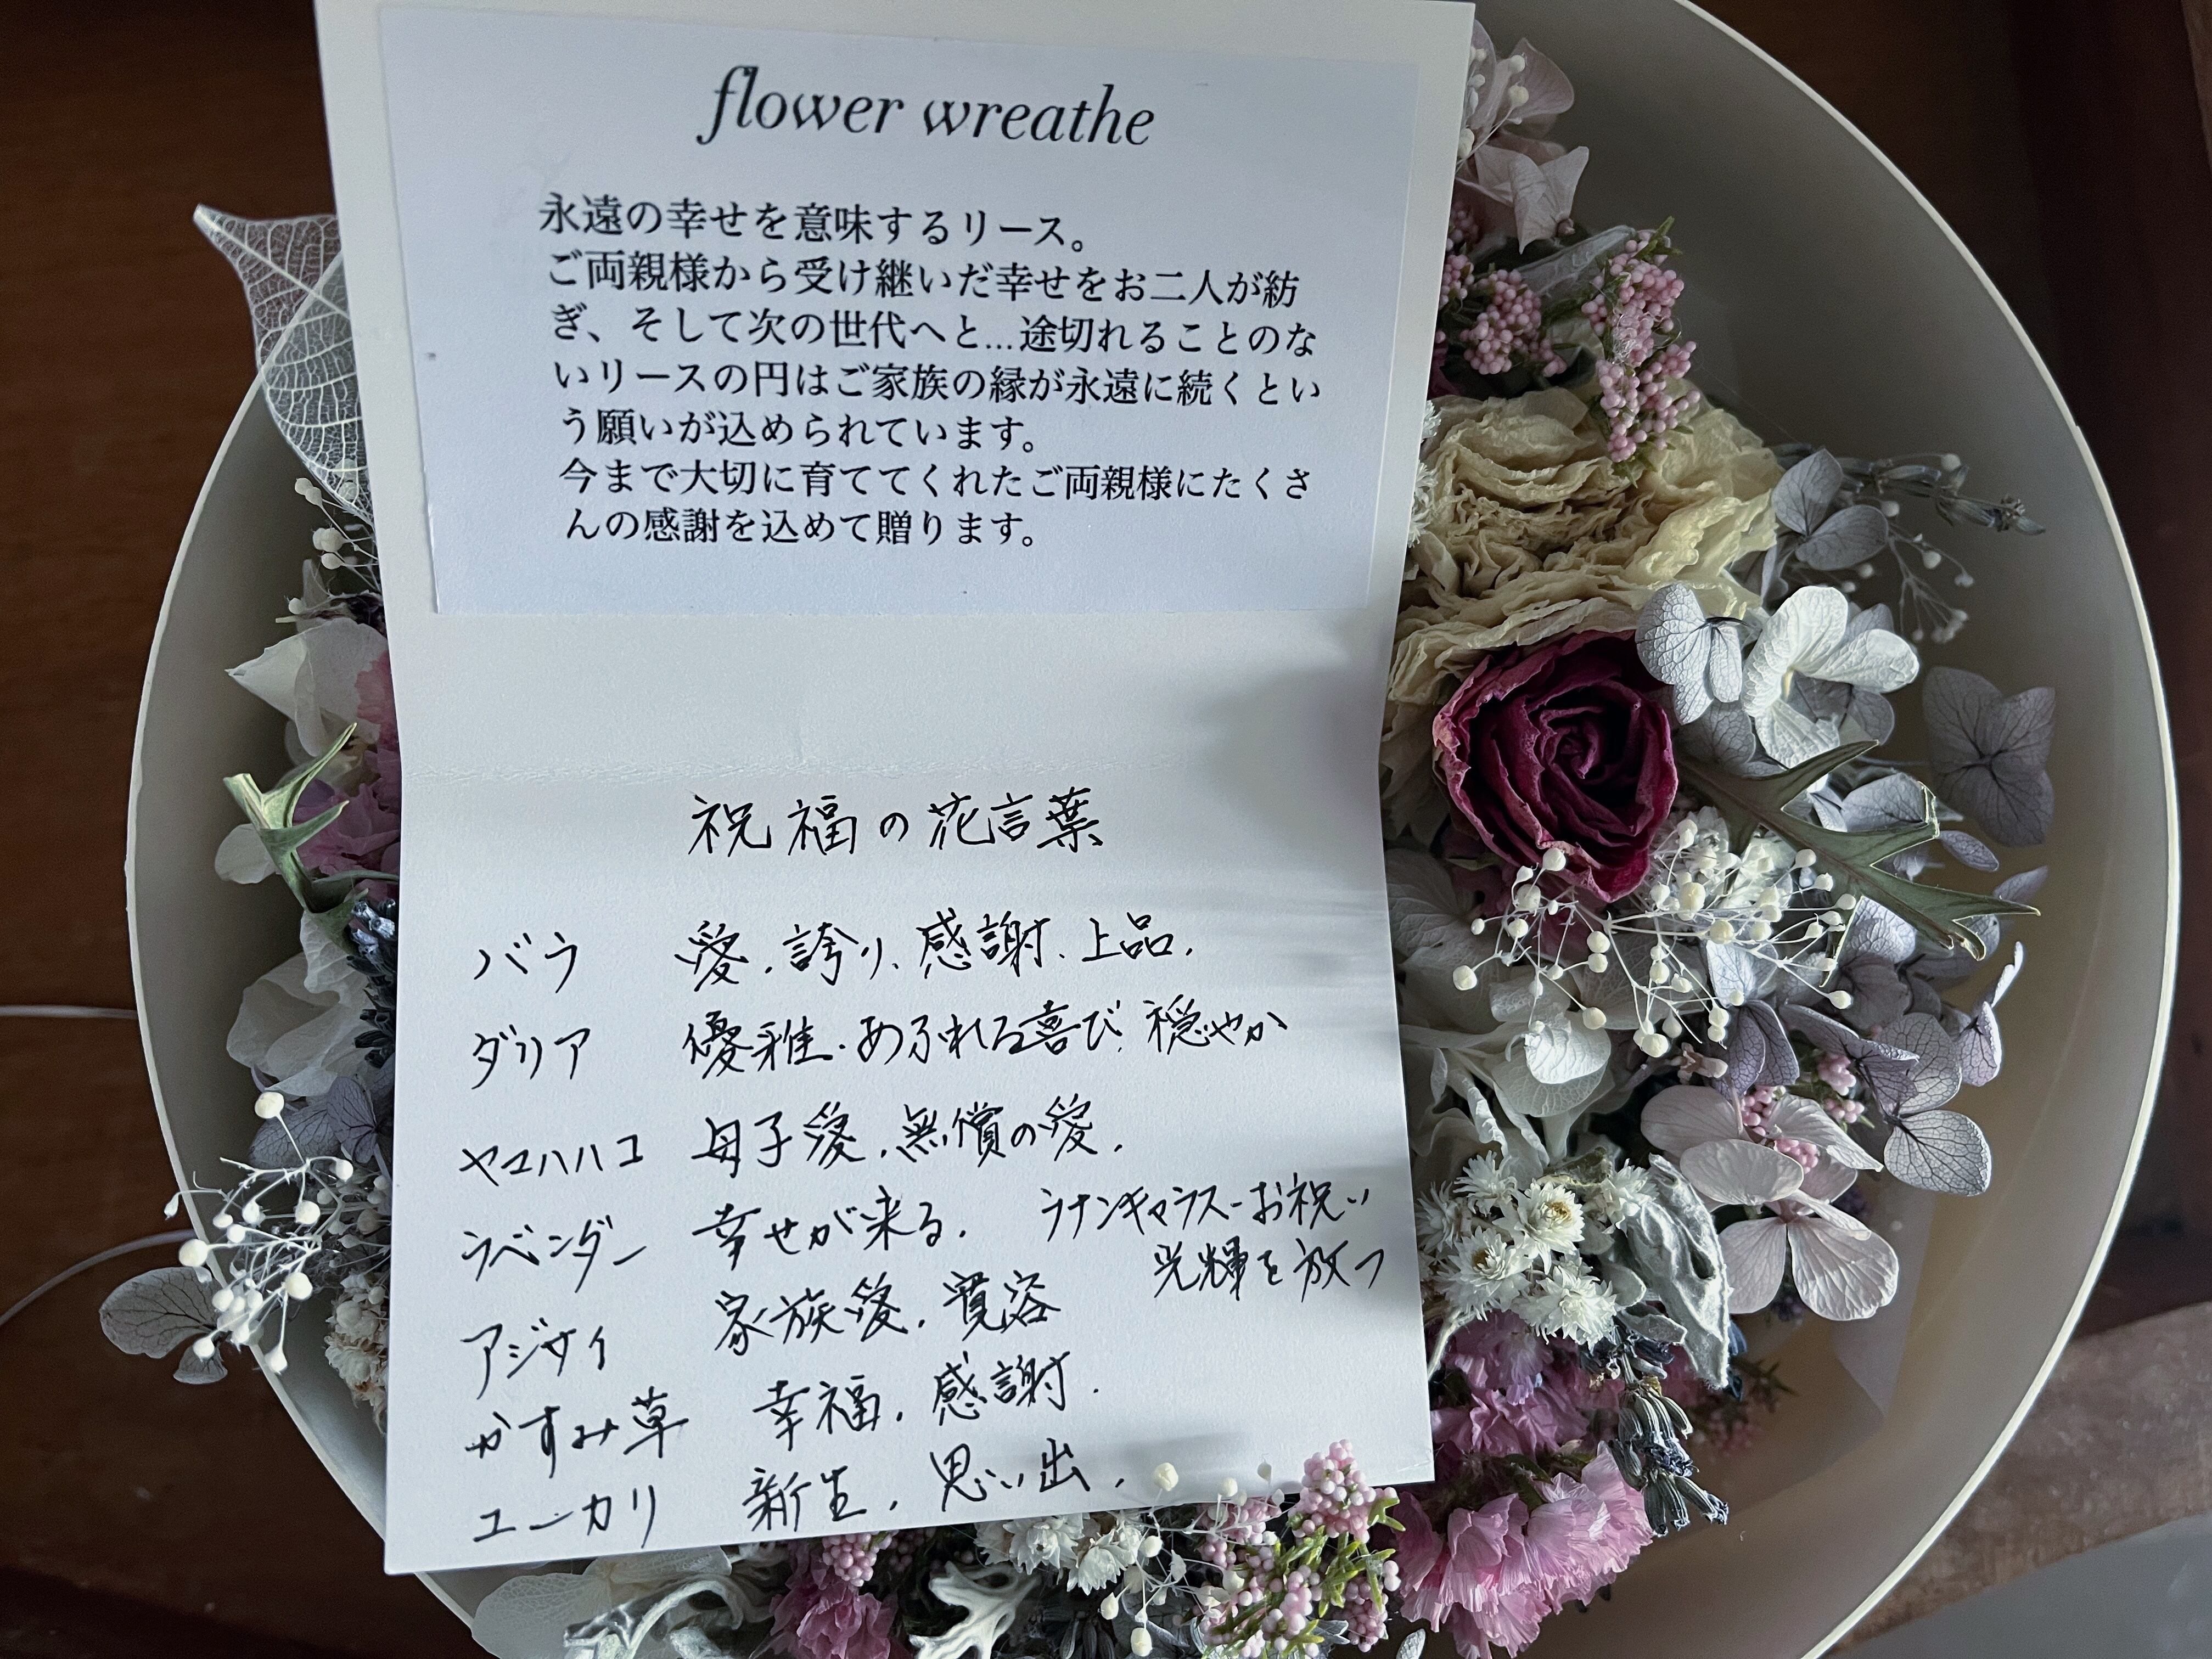 flower wreathe
永遠の幸せを意味するリース。
ご両親様から受け継いだ幸せをお二人が紡
ぎ、そして次の世代へと...途切れることのな
いリースの円はご家族の縁が永遠に続くとい
う願いが込められています。
今まで大切に育ててくれたご両親様にたくさ
んの感謝を込めて贈ります。
祝福の花言葉
バラ 愛、誇り、感謝、上品、
ダリア 優雅、あふれる喜び、穏やか
ヤマハハコ 母子愛、無償の愛、
ラベンダー 幸せが来る、 ラナンキュラス-お祝い
光輝を放つ
アジサイ 家族愛、寛容
かすみ草 幸福、感謝、
ユーカリ 新生、思い出、